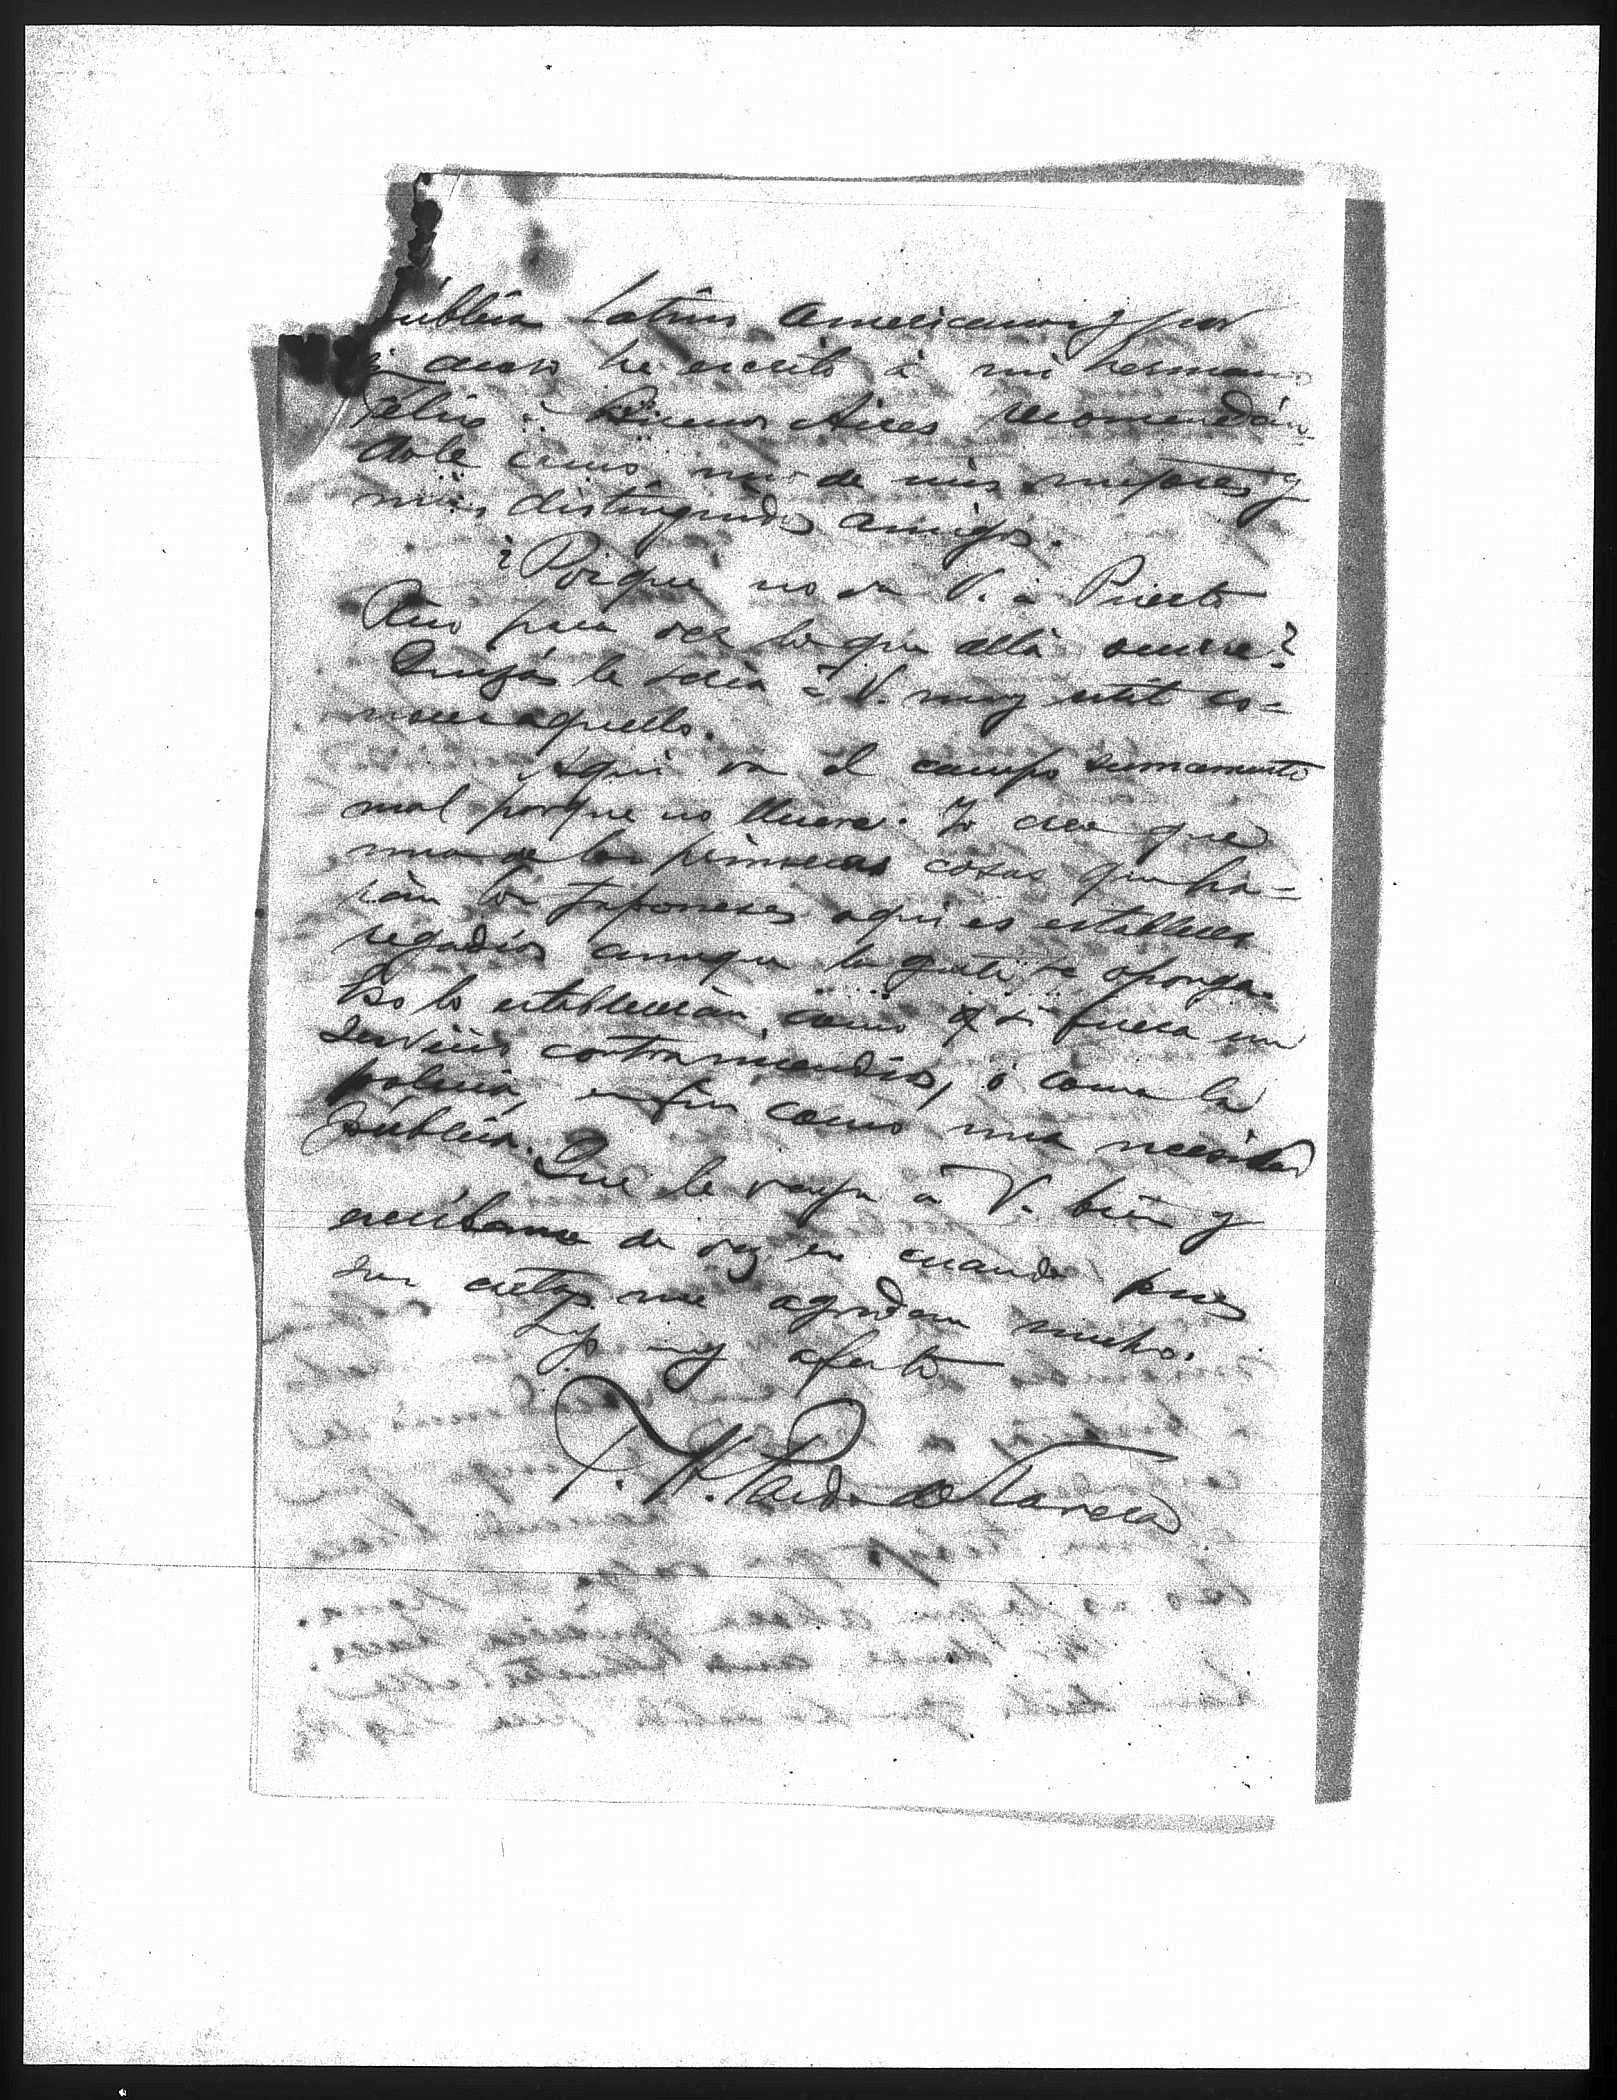 pública Latino Americana y por
si acaso he escrito á mi hermano
Félix á Buenos Aires recomendán-
dole como uno de mis mejores y
más distinguidos amigos.
¿Porqué no va V. á Puerto
Rico para ver lo que allá ocurre?
Quizás le sería á V. muy útil co-
nocer aquello.
Aquí va el campo sumamente
mal porque no llueve. Yo creo que
una de las primeras cosas que ha-
rán los Japoneses aquí es establecer
regadíos aunque la gente se oponga.
Eso lo establecerán, como si fuera un
servicio contra incendios, ó como la
policía, en fin como una necesidad
pública.
Que le vaya á V. bien y
escríbame de vez en cuando pues
sus cartas me agradan mucho.
Su muy afecto
T. H. Pardo de Tavera